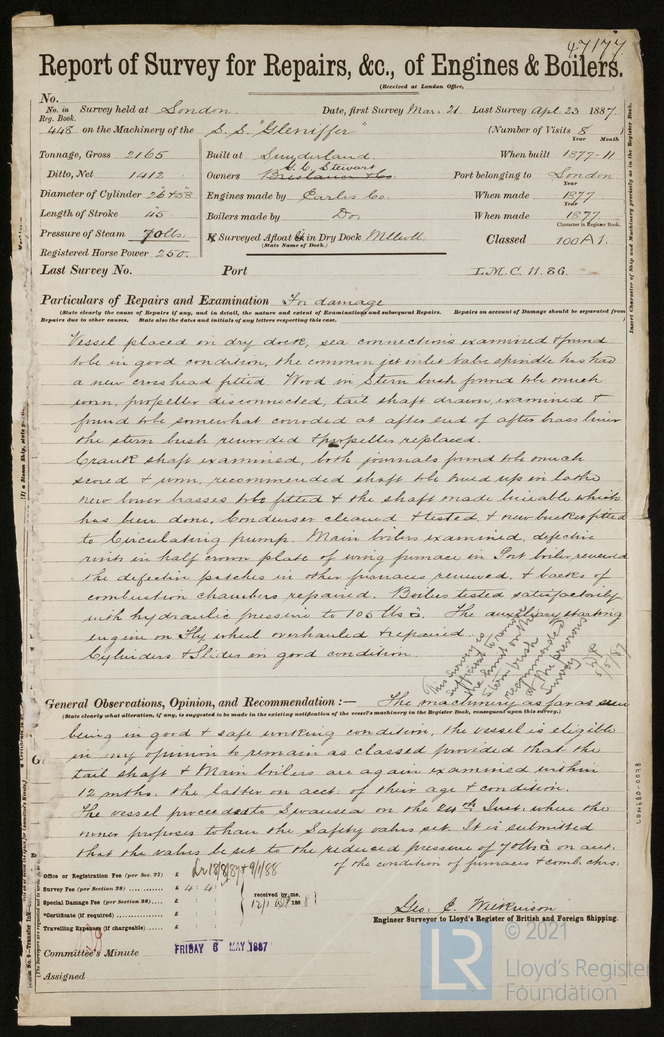 47177
Report of Survey for Repairs, &c., of Engines & Boilers.
(Received at London Office,
No.
No. in Reg. Book. Survey held at London Date, first Survey Mar. 21 Last Survey Apl. 23 1887
448 on the Machinery of the S.S. "Gleniffer" (Number of Visits 8)
Year Month
Tonnage, Gross 2165 Built at Sunderland When built 1877-11
G. C. Stewart
Ditto, Net 1412 Owners Port belonging to London
Year
Diameter of Cylinder Engines made by Earles Co. When made 1877
Year
Length of Stroke 45 Boilers made by Do. When made 1877
Character in Register Book.
Pressure of Steam 70 lbs. Surveyed Afloat & in Dry Dock Millwall Classed 100A1.
(State Name of Dock.)
Registered Horse Power 250.
Last Survey No. Port L.M.C. 11.86
Particulars of Repairs and Examination For damage
(State clearly the cause of Repairs if any, and in detail, the nature and extent of Examinations and subsequent Repairs. Repairs on account of Damage should be separated from
Repairs due to other causes. State also the dates and initials of any letters respecting this case.
Vessel placed on dry dock, sea connections examined & found
to be in good condition, the common jet inlet valve spindle has had
a new crosshead fitted. Wood in Stern bush found to be much
worn, propeller disconnected, tail shaft drawn, examined &
found to be somewhat corroded at after end of after brass liner
the stern bush rewooded & propeller replaced.
Crank shaft examined, both journals found to be much
scored & worn, recommended shaft to be trued up in lathe
new lower brasses to be fitted & the shaft made liveable which
has been done, Condenser cleaned & tested, & new bucket fitted
to Circulating pump. Main boilers examined, defective
rivets in half crown plate of wing furnace in Port boiler renewed
the defective patches in other furnaces renewed, & backs of
combustion chambers repaired. Boilers tested satisfactorily
with hydraulic pressure to 105 lbs □. The auxiliary starting
engine on Fly wheel overhauled & repaired.
Cylinders & Slides in good condition.
This survey is
sufficient to remove
the limit on the
stern bush
recommended
at the previous
survey
5/5/87
General Observations, Opinion, and Recommendation:— The machinery as far as seen
(State clearly what alteration, if any, is suggested to be made in the existing notification of the vessel's machinery in the Register Book, consequent upon this survey.)
being in good & safe working condition, the vessel is eligible
in my opinion to remain as classed provided that the
tail shaft & Main boilers are again examined within
12 mths. the latter on acct. of their age & condition.
The vessel proceeded to Swansea on the 24th Inst. where the
owner proposes to have the Safety valves set. It is submitted
that the valves be set to the reduced pressure of 70 lbs □ on acct.
of the condition of furnaces & comb. chrs.
Office or Registration Fee (per Sec. 27) £
Survey Fee (per Section 28) £ 4: 4:
Special Damage Fee (per Section 28) £
received by me,
*Certificate (if required) £
Travelling Expenses (if chargeable) £
Geo. E. Wilkinson
Engineer Surveyor to Lloyd's Register of British and Foreign Shipping.
Committee's Minute FRIDAY 6 MAY 1887
Assigned
Insert Character of Ship and Machinery precisely as in the Register Book.
LON680-0078
© 2021
LR
Lloyd's Register
Foundation